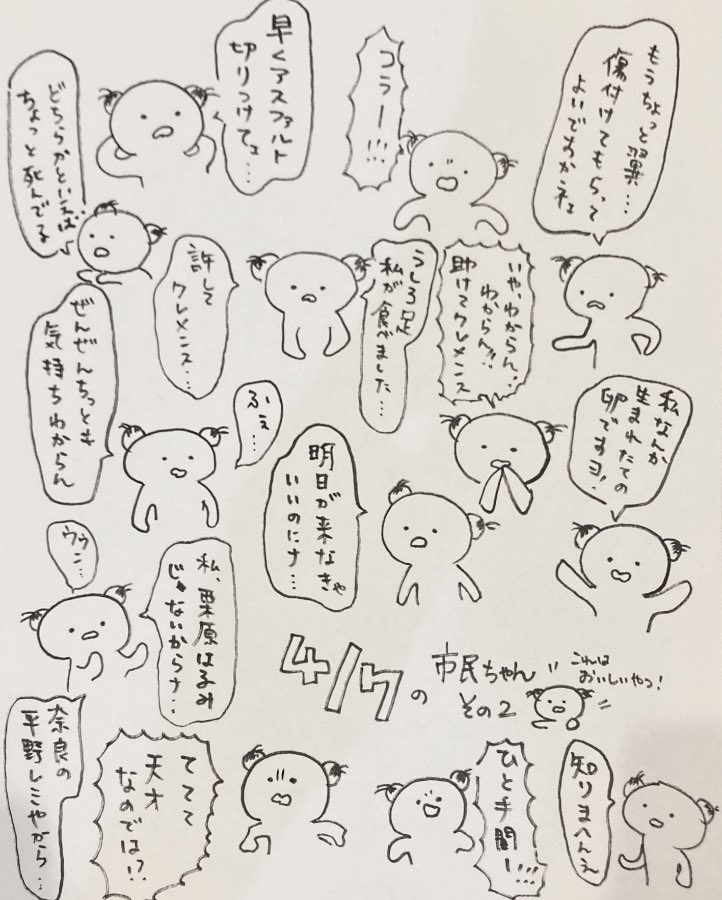 もうちょっと翼…
傷付けてもらって
よいですかネェ
コラー!!!
早くアスファルト
切りつけてょ…
どちらかといえば…
ちょっと死んでる
いや、わからん…
わからん!!
助けてクレメンス
うしろ足
私が食べました…
許して
クレメンス…
ぜんぜんちっとも
気持ちわからん
私なんか
生まれたての
卵ですヨ!
明日が来なきゃ
いいのにナ…
ふぇ…
ウゥン…
私、栗原はるみ
じゃないからナ…
4/7の
市民ちゃん
その2
これは
おいしいやつ!
知りまへんえ
ひと手間ー!!!
ててて
天才
なのでは!?
奈良の
平野レミやから…